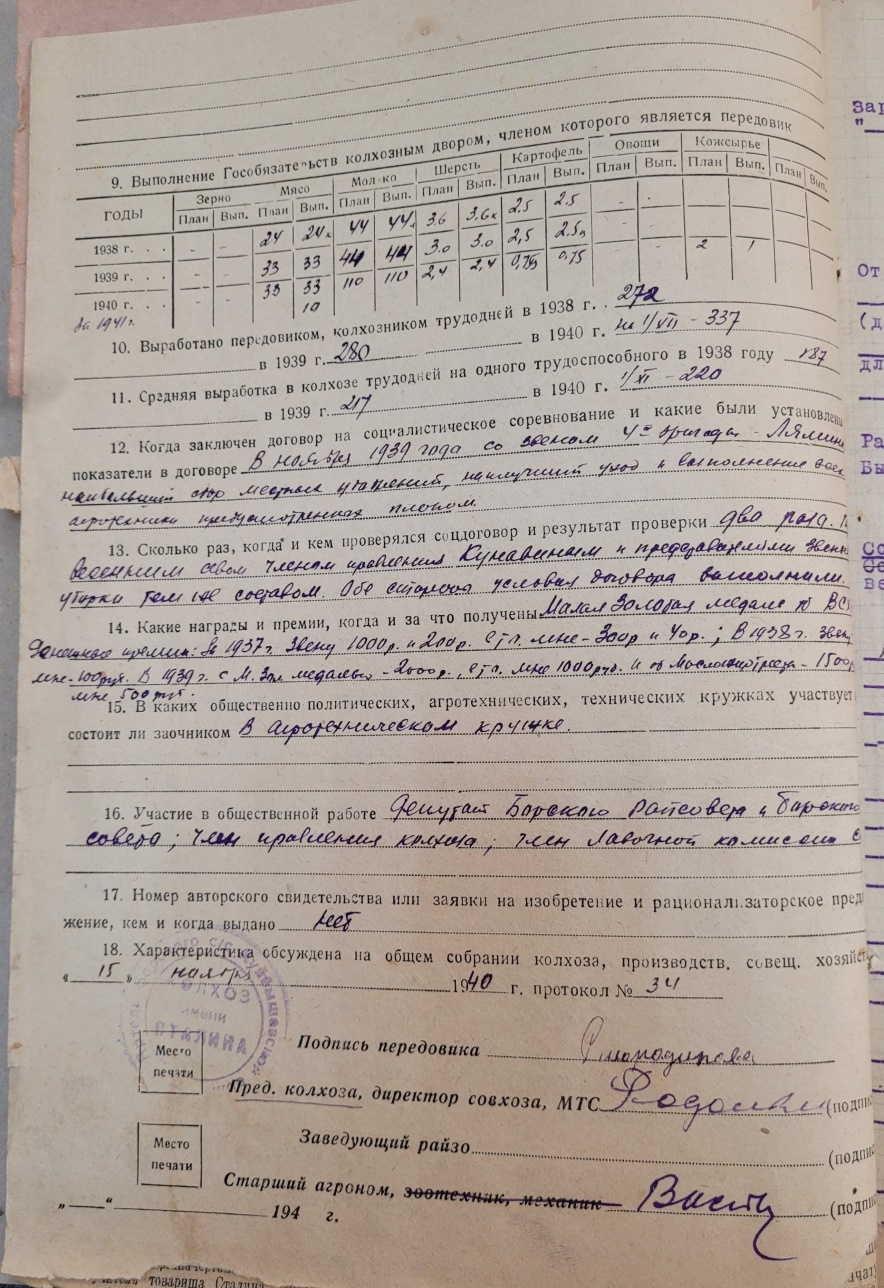 9. Выполнение Гособязательств колхозным двором, членом которого является передовик
ГОДЫ Зерно Мясо Молоко Шерсть Картофель Овощи Кожсырье
План Вып. План Вып. План Вып. План Вып. План Вып. План Вып. План Вып. План Вып.
1938 г. . . - - 24 24 44 44 3.6 3.6 2.5 2.5 - -
1939 г. . . - - 33 33 44 44 3.0 3.0 2,5 2.5 - - 2 1
1940 г. . . - - 33 33 110 110 2,4 2,4 0,75 0,75
За 1941 г. 10
10. Выработано передовиком, колхозником трудодней в 1938 г. . 272
в 1939 г. 280 в 1940 г. на 1/VII - 337
11. Средняя выработка в колхозе трудодней на одного трудоспособного в 1938 году 187
в 1939 г. 217 в 1940 г. 1/XI - 220
12. Когда заключен договор на социалистическое соревнование и какие были установлены
показатели в договоре В ноябре 1939 года со звеном 4й бригады -
наибольший сбор местных удобрений, наилучший уход и выполнение всей
агротехники предусмотренных планом
13. Сколько раз, когда и кем проверялся соцдоговор и результат проверки два раза.
весенним севом членом правления Кунавиным и представителями звена
уборки тем же составом. Обе стороны условия договора выполнили.
14. Какие награды и премии, когда и за что получены Малая Золотая медаль
Денежные премии: За 1937 г. звену 1000 р. и 200 р. в т. ч. мне - 300 р и 40 р.; В 1938 г.
мне - 100 руб. В 1939 г. с М. Зол. медалью - 2000 р., в т. ч. мне 1000 руб. и от
мне 500 руб.
15. В каких общественно политических, агротехнических, технических кружках участвует
состоит ли заочником В агротехническом кружке.
16. Участие в общественной работе Депутат Борского райсовета и
совета; член правления колхоза; член лавочной комиссии
17. Номер авторского свидетельства или заявки на изобретение и рационализаторское пред
жение, кем и когда выдано нет
18. Характеристика обсуждена на общем собрании колхоза, производств. совещ. хозяйст
„ 15 „ ноября 1940 г. протокол № 34
КОЛХОЗ
ИМЕНИ
СТАЛИНА
Место
печати
Подпись передовика
Пред. колхоза, директор совхоза, МТС (подпи
Место
печати
Заведующий райзо (подпис
Старший агроном, зоотехник, механик (подп
„ “ 194 г.
товарища Сталина
Зар
"
От
(д
дл
Ра
Бы
Со